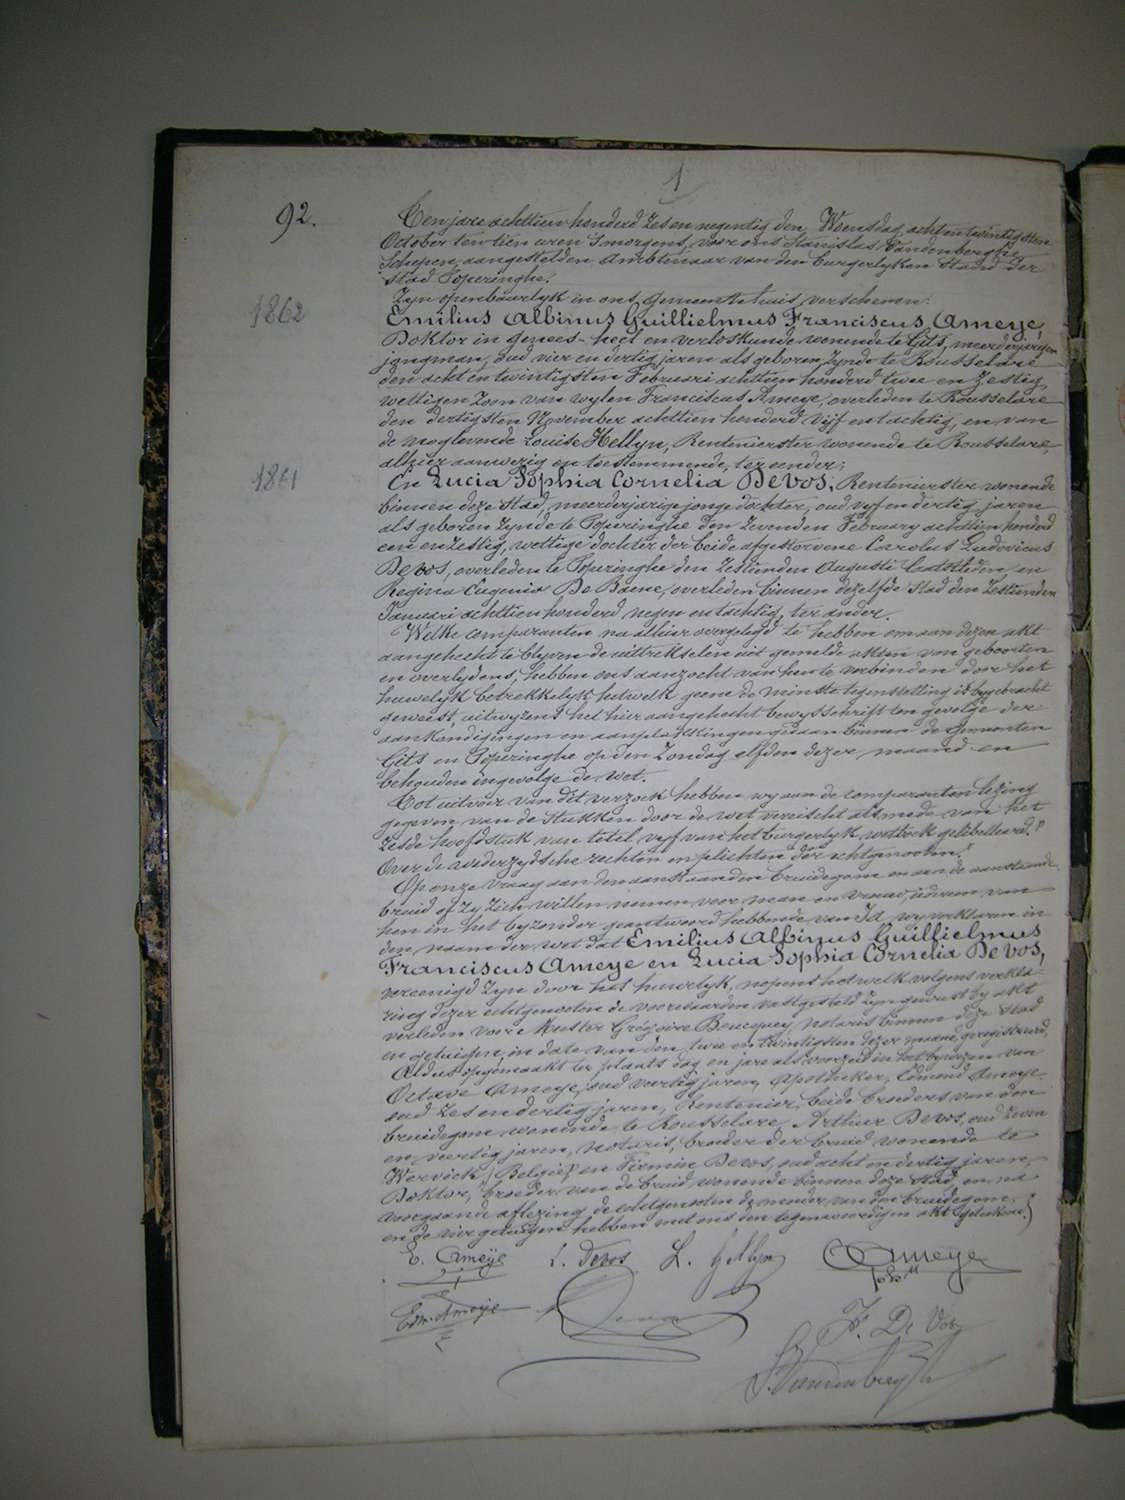 1
92.
Ten jare achttien honderd zes en negentig den Woensdag acht en twintigsten
October ten tien uren s'morgens, voor ons Stanislas Vandenberghe
Schepen, aangestelden Ambtenaar van den burgerlyken Stand der
Stad Poperinghe.
Zyn openbaarlyk in ons Gemeentehuis verschenen:
1862
Emilius Albinus Guillielmus Franciscus Ameye,
Doktor in genees- heel en verloskunde wonende te Gits, meerderjarigen
jongman, oud vier en dertig jaren als geboren zynde te Rousselare
den acht en twintigsten Februari achttien honderd twee en zestig,
wettigen zoon van wylen Franciscus Ameye, overleden te Rousselare
den dertigsten November achttien honderd vyf en tachtig, en van
de noglevende Louise Hellyn, Rentenierster wonende te Rousselare,
alhier aanwezig en toestemmende, ter eender;
1861
En Lucia Sophia Cornelia Devos, Rentenierster wonende
binnen deze Stad, meerderjarige jonge dochter, oud vyf en dertig jaren
als geboren zynde te Poperinghe den zevenden February achttien honderd
een en zestig, wettige dochter der beide afgestorvene Carolus Ludovicus
Devos, overleden te Poperinghe den zestienden Augusti laatstleden, en
Regina Eugenia De Baene, overleden binnen dezelfde Stad den zestienden
Januari achttien honderd negen en tachtig, ter ander.
Welke comparanten na alhier overgelegd te hebben om aan dezen akt
aangehecht te blyven de uittrekselen uit gemelde akten van geboorten
en overlydens, hebben ons aanzocht van hen te verbinden door het
huwelyk betrekkelyk hetwelk geene de minste tegenstelling is bygebracht
geweest, uitwyzens het hier aangehecht bewysschrift ten gevolge der
aankondigingen en aanplakkingen gedaan binnen de Gemeenten
Gits en Poperinghe op den Zondag elfden dezer maand en
behouden ingevolge de wet.
Tot uitvoer van dit verzoek hebben wy aan de comparanten lezing
gegeven van de Stukken door de wet vereischt alsmede van het
zesde hoofdstuk van titel vyf van het burgerlyk wetboek getitelleerd:
Over de wederzydsche rechten en plichten der echtgenooten.
Op onze vraag aan den aanstaanden bruidegom en aan de aanstaande
bruid of zy zich willen nemen voor man en vrouw, iedereen van
hen in het byzonder geantwoord hebbende van Ja wy verklaren in
den naam der wet dat Emilius Albinus Guillielmus
Franciscus Ameye en Lucia Sophia Cornelia Devos,
vereenigd zyn door het huwelyk, nopens hetwelk volgens verkla-
ring dezer echtgenooten de voorwaarden vastgesteld zyn geweest by akt
verleden voor Mester Grégoire Boucquey, notaris binnen deze Stad
en getuigen, in date van den twee en twintigsten dezer maand geregistreerd.
Aldus opgemaakt ter plaats dag en jare als voorzeid in het bywezen van
Octave Ameye, oud veertig jaren, Apotheker, Edmond Ameye
oud zes en dertig jaren, Rentenier, beide broeders van den
bruidegom wonende te Rousselare, Arthur Devos, oud zeven
en veertig jaren, Notaris, broeder der bruid wonende te
Wervick (België) en Firmin Devos, oud acht en dertig jaren,
Doktor, broeder van de bruid wonende binnen deze Stad, en na
voorgaande aflezing de echtgenooten de moeder van den bruidegom
en de vier getuigen hebben met ons den tegenwoordigen akt geteekend.
E. Ameye L. Devos L. Hellyn O Ameye
Edm. Ameye Devos F. De Vos
S. Vandenberghe